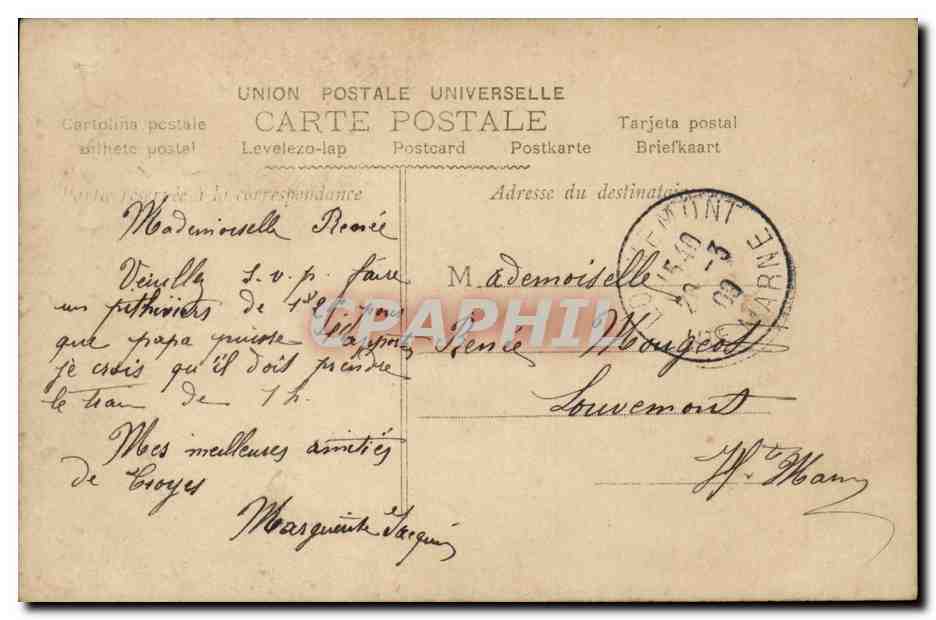 UNION POSTALE UNIVERSELLE
CARTE POSTALE
Cartolina postale
Tarjeta postal
Bilhete postal
Levelezo-lap
Postcard
Postkarte
Briefkaart
Partie réservée à la correspondance
Adresse du destinataire
Mademoiselle Renée
Veuillez s.v.p. faire
un pithiviers de
que papa puisse l'apporter
je crois qu'il doit prendre
le train de 1 h.
Mes meilleures amitiés
de Troyes
Marguerite Jacquin
Mademoiselle
Renée Mougeot
Louvemont
Hte Marne
LOUVEMONT
15 40
20 -3
09
HTE MARNE
CPAPHIL.com